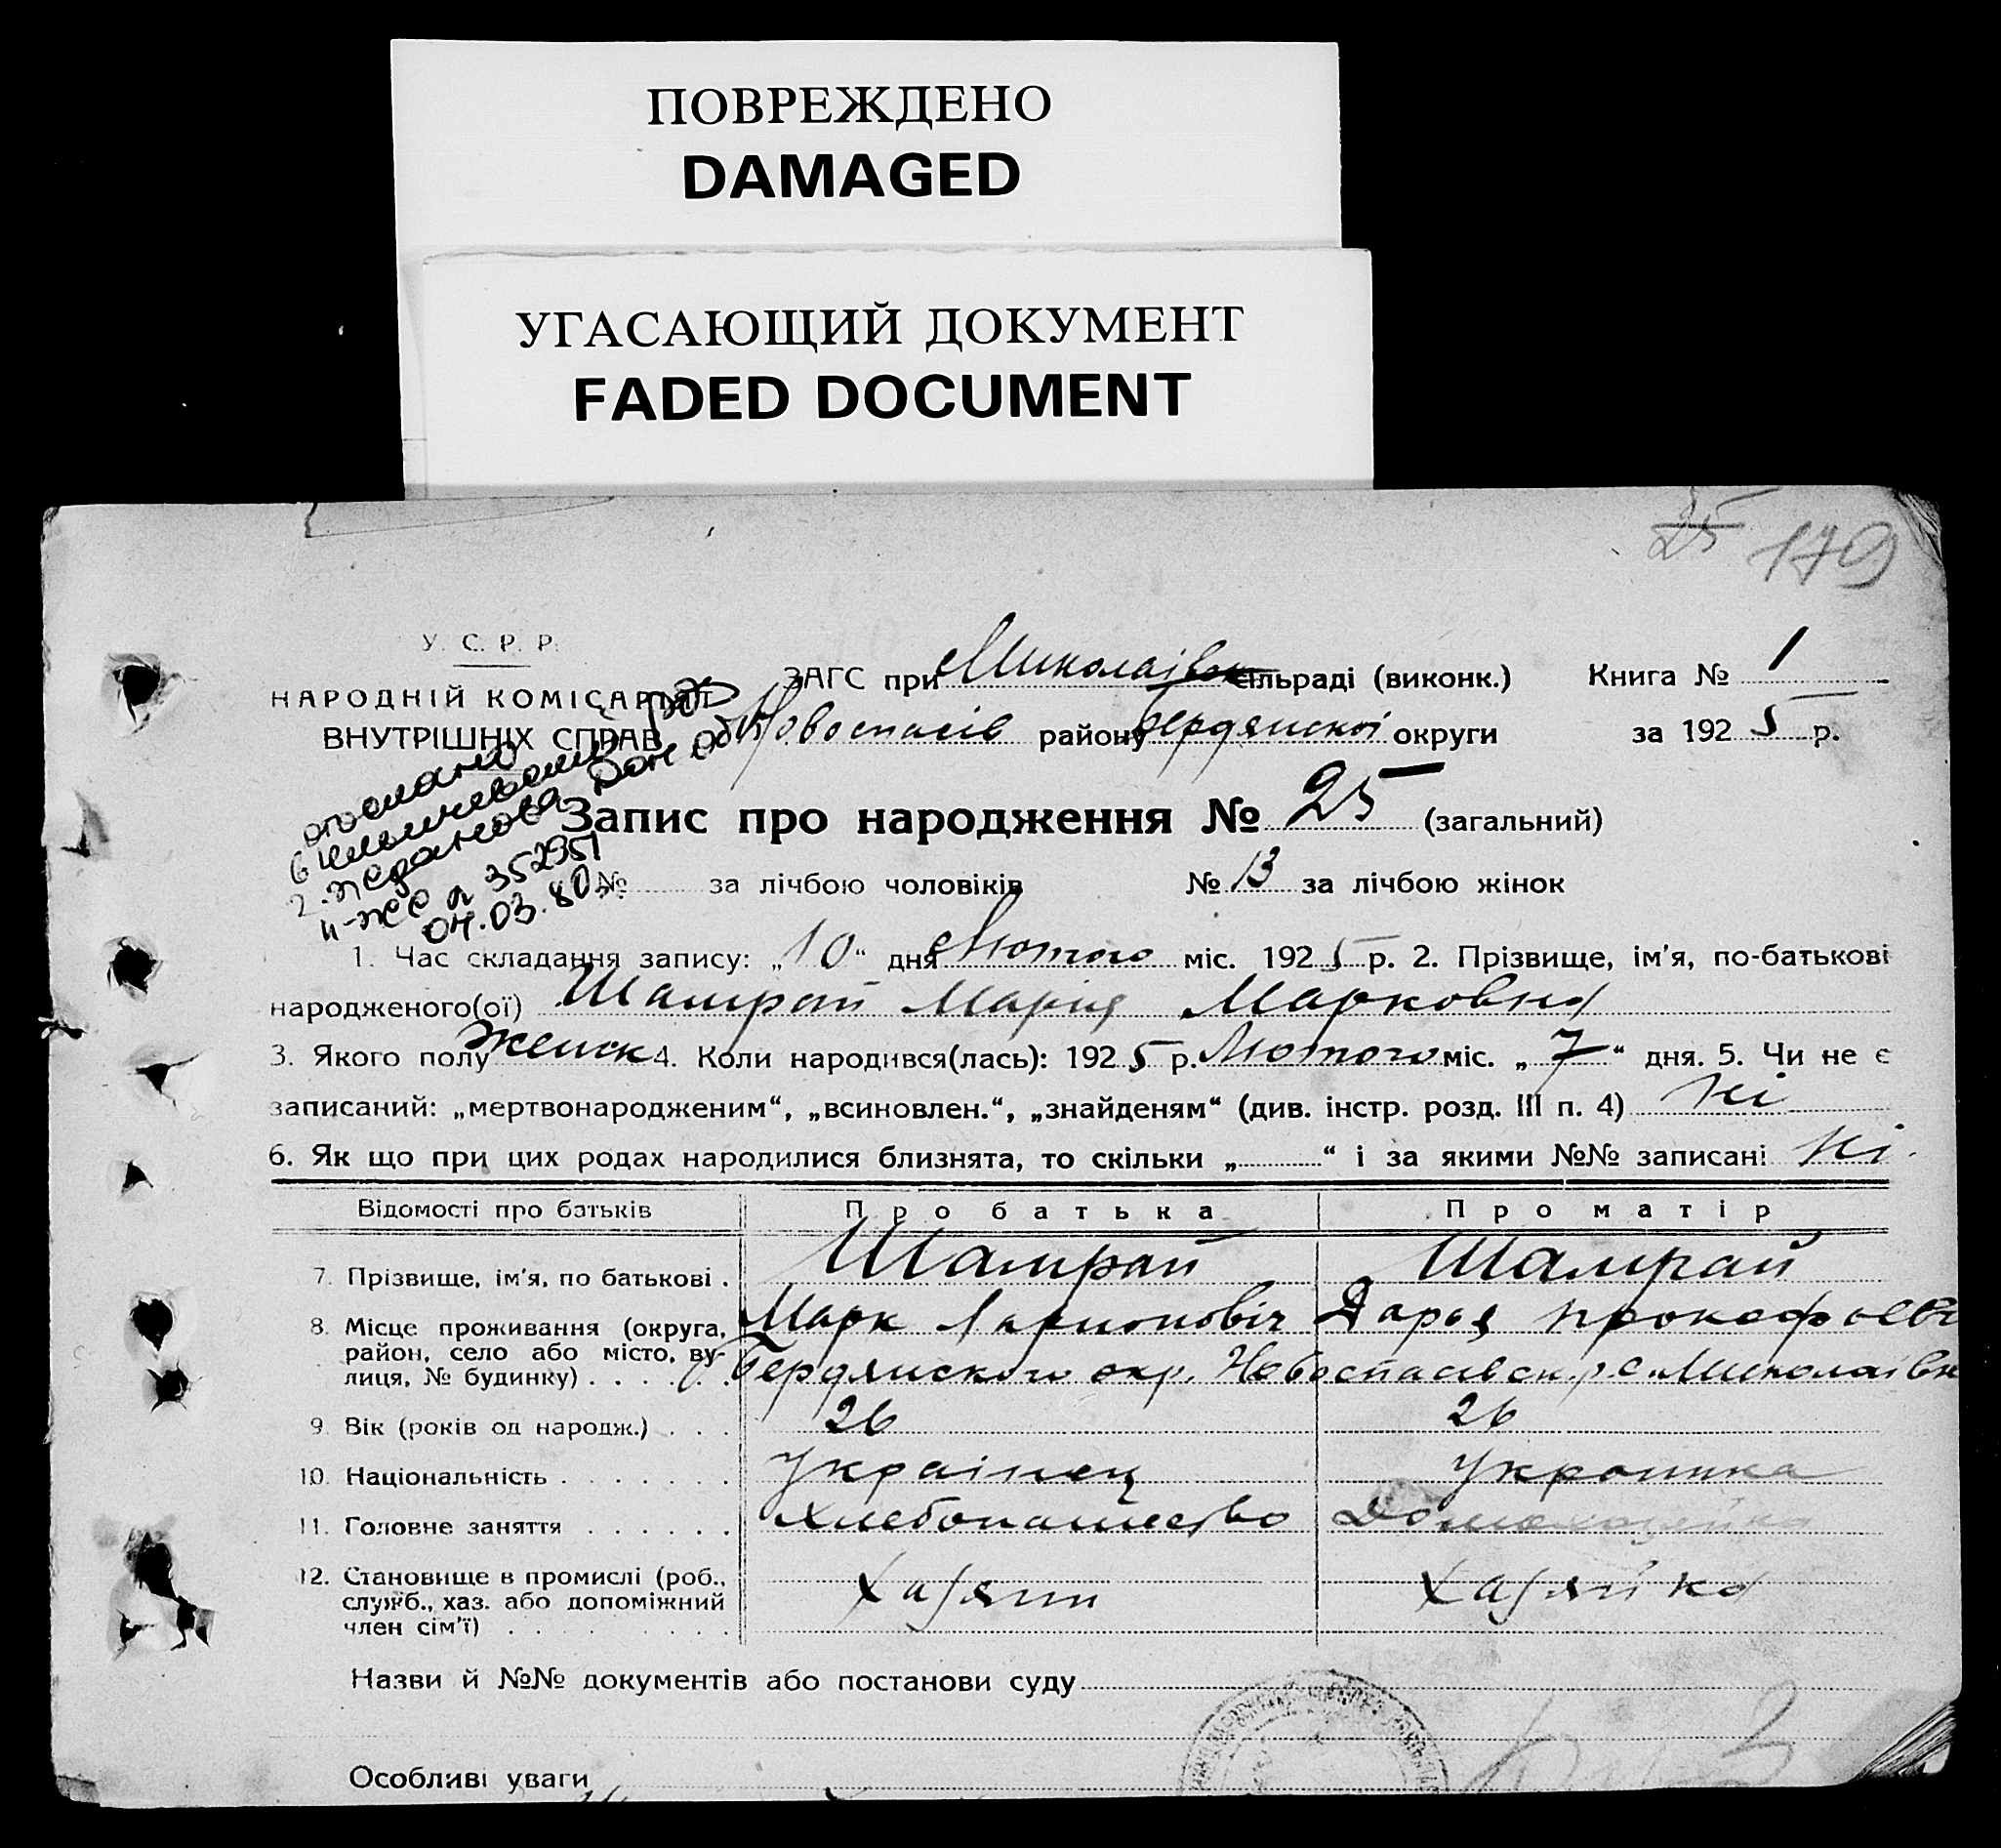 ПОВРЕЖДЕНО
DAMAGED
УГАСАЮЩИЙ ДОКУМЕНТ
FADED DOCUMENT
25 179
У. С. Р. Р.
НАРОДНІЙ КОМІСАРІЯТ
ВНУТРІШНІХ СПРАВ
ЗАГС при Миколаївск сільраді (виконк.) Книга № 1
Новоспасів району Бердянскої округи за 1925 р.
отослано
в Ильичевский
г. Жданова Дон обл
II-ЖС № 352951
04.03.80
Запис про народження № 25 (загальний)
№ за лічбою чоловіків № 13 за лічбою жінок
1. Час складання запису: „10“ дня Лютого міс. 1925 р. 2. Прізвище, ім'я, по-батькові
народженого(ої) Шамрай Марія Марковна
3. Якого полу женск 4. Коли народився(лась): 1925 р. Лютого міс. „7“ дня. 5. Чи не є
записаний: „мертвонародженим“, „всиновлен.“, „знайденям“ (див. інстр. розд. III п. 4) Ні
6. Як що при цих родах народилися близнята, то скільки „ “ і за якими №№ записані Ні.
Відомості про батьків Про батька Про матір
7. Прізвище, ім'я, по батькові . Шамрай Шамрай
Марк Ларионовіч Дарья Прокофьевн
8. Місце проживання (округа,
район, село або місто, ву-
лиця, № будинку) . . . . . . Бердянского окр. Новоспасівск. р. с. Миколаівк
9. Вік (років од народж.) . . . 26 26
10. Національність . . . . . . . Украінец Украинка
11. Головне заняття . . . . . . Хлебопашество Домохозяйка
12. Становище в промислі (роб.,
служб., хаз. або допоміжний
член сім'ї) . . . . . . . . . Хазяин Хазяйка
Назви й №№ документів або постанови суду
Особливі уваги